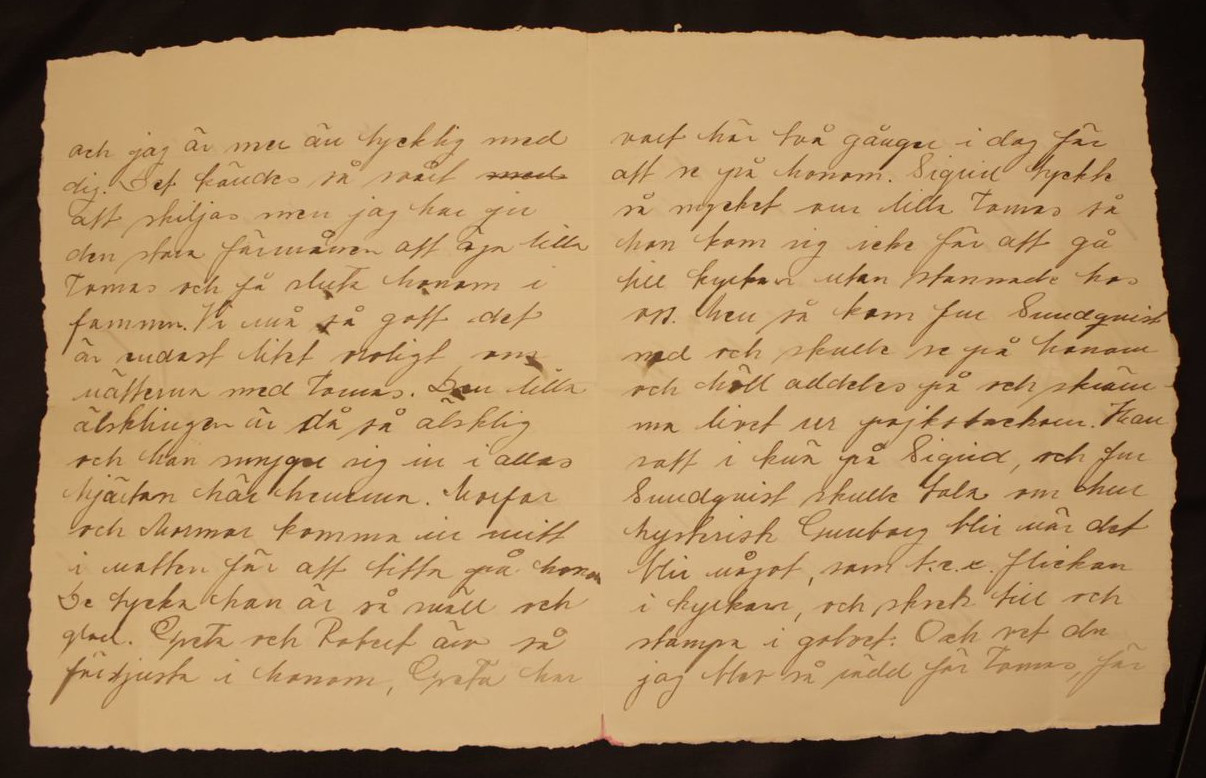 och jag är mer än lycklig med
dig. Det kändes så svårt med
att skiljas men jag har ju
den stora förmånen att äga lilla
Tomas och få sluta honom i
famnen. Vi må så gott det
är endast litet oroligt om
nätterna med Tomas. Den lilla
älsklingen är då så älsklig
och han smyger sig in i allas
hjärtan här hemma. Morfar
och Mormor komma in mitt
i natten för att titta på honom
De tycka han är så snäll och
glad. Greta och Robert äro så
förtjusta i honom, Greta har
varit här två gånger i dag för
att se på honom. Sigrid tyckte
så mycket om lilla Tomas så
hon kom sig icke för att gå
till kyrkan utan stannade hos
oss. Men så kom fru Sundqvist
ned och skulle se på honom
och höll alldeles på och skräm-
ma livet ur pojkstackarn. Han
satt i knä på Sigrid, och fru
Sundqvist skulle tala om hur
hysterisk Gunborg blir när det
blir något, som t.e.x. flickan
i kyrkan, och skrek till och
stampa i golvet. Och vet du
jag blev så rädd för Tomas, för